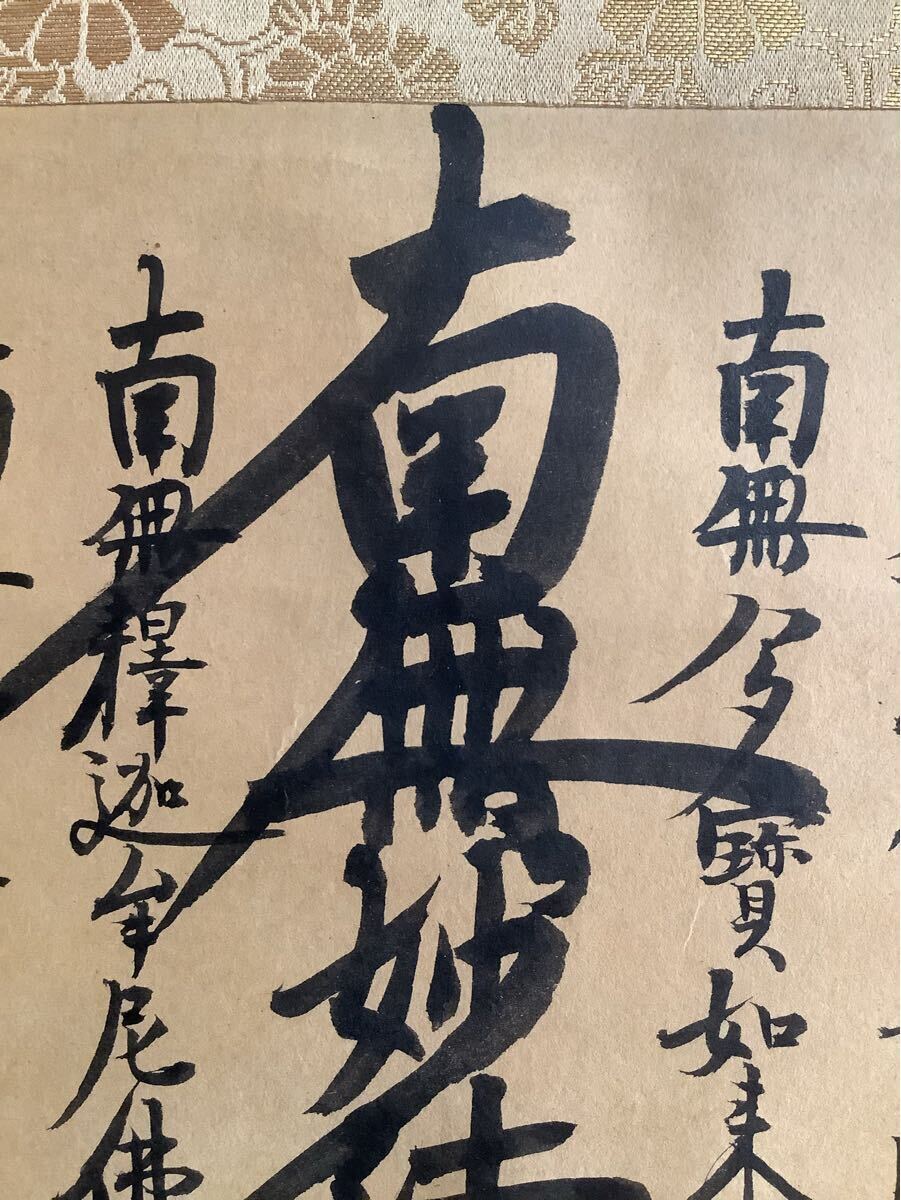 南無多寳如来
南無妙法
南無釋迦牟尼佛